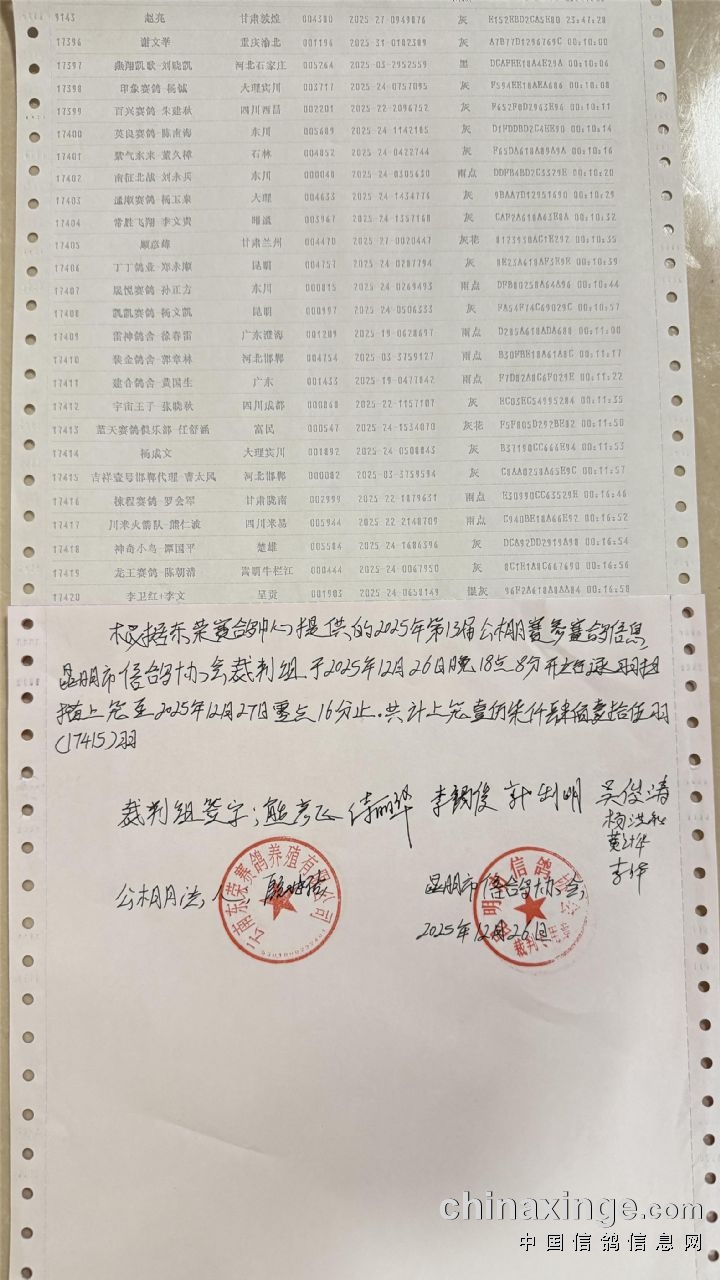 9143 赵亮 甘肃敦煌 004380 2025-27-0949876 灰 E152EBD2CA5E80 23:47:28
17396 谢文举 重庆渝北 001196 2025-31-0102389 灰 A7B77D1296769C 00:10:00
17397 鼎翔凯歌-刘晓凯 河北石家庄 005264 2025-03-2952559 黑 DCAFEE18A4E29A 00:10:06
17398 印象赛鸽-杨铖 大理宾川 003717 2025-24-0757095 灰 00:10:08
17399 百兴赛鸽-朱建秋 四川西昌 002201 2025-22-2096752 灰 F652F0D2963E96 00:10:11
17400 英良赛鸽-陈南海 东川 005689 2025-24-1142185 灰 00:10:14
17401 紫气东来-董久樟 石林 004052 2025-24-0422744 灰 00:10:16
17402 南征北战-刘永兵 东川 000040 2025-24-0305630 雨点 00:10:20
17403 大理 004633 2025-24-1434776 灰 9BAA7D12951690 00:10:29
17404 常胜飞翔-李文贵 昭通 003967 2025-24-1357168 灰 00:10:32
17405 顾彦峰 甘肃兰州 004470 2025-27-0020447 灰花 8123930AC1E292 00:10:35
17406 丁丁鸽业-郑永顺 昆明 004757 2025-24-0287794 灰 00:10:39
17407 晟悦赛鸽-孙正方 东川 000815 2025-24-0269493 雨点 DFB80258A64A96 00:10:44
17408 凯凯赛鸽-杨文凯 昆明 000997 2025-24-0506333 灰 FA54F74C69029C 00:10:57
17409 雷神鸽舍-徐春雷 广东澄海 001209 2025-19-0628697 雨点 D285A618ADA688 00:11:00
17410 装金鸽舍-郭章林 河北邯郸 004754 2025-03-3759127 雨点 B30FBE18A61A8C 00:11:17
17411 建合鸽舍-黄国生 广东 001433 2025-19-0477842 雨点 F7D82A8C6F029E 00:11:22
17412 宇宙王子-张晓秋 四川成都 000868 2025-22-1157107 灰 EC03EC54995284 00:11:35
17413 蓝天赛鸽俱乐部-任舒涵 富民 000547 2025-24-1534070 灰花 F5F805D292BE82 00:11:50
17414 杨成文 大理宾川 001892 2025-24-0508843 灰 B37190CC666E94 00:11:53
17415 吉祥壹号邯郸代理-曹太风 河北邯郸 000082 2025-03-3759594 灰 C8AA0258A65E9C 00:11:57
17416 栋程赛鸽-罗会军 甘肃陇南 002999 2025-22-1879631 雨点 E30990CC63529E 00:16:46
17417 川米火箭队-熊仁波 四川米易 005944 2025-22-2148709 雨点 C940BE18A66E92 00:16:52
17418 神奇小鸟-谭国平 楚雄 005584 2025-24-1686396 灰 DCA92DD2919A98 00:16:54
17419 龙王赛鸽-陈朝清 嵩明牛栏江 000444 2025-24-0067950 灰 8C1E1A8C667690 00:16:56
17420 李卫红+李文 呈贡 001903 2025-24-0650149 银灰 96F2A618A8AA84 00:16:58
根据东荣赛鸽中心提供的2025年第13届公棚赛参赛鸽信息
昆明市信鸽协会裁判组于2025年12月26日晚18点8分开始逐羽扫
描上笼至2025年12月27日零点16分止.共计上笼壹万柒仟肆佰壹拾伍羽
(17415)羽
裁判组签字: 熊彦飞 李锡俊 吴俊涛
杨洪松
黄计华
李华
公棚法人
昆明市信鸽协会
2025年12月26日
云南东荣赛鸽养殖有限公司
昆明市信鸽协会 裁判专用章
chinaxinge.com
中国信鸽信息网